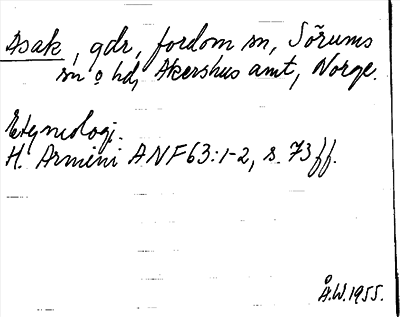 Asak, gdr, fordom sn, Sörums
sn o hd, Akershus amt, Norge.
Etymologi.
H. Armini ANF 63:1-2, s. 73 ff.
Å.W. 1955.